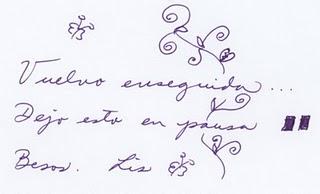 Vuelvo enseguida...
Dejo esto en pausa
Besos. Lis